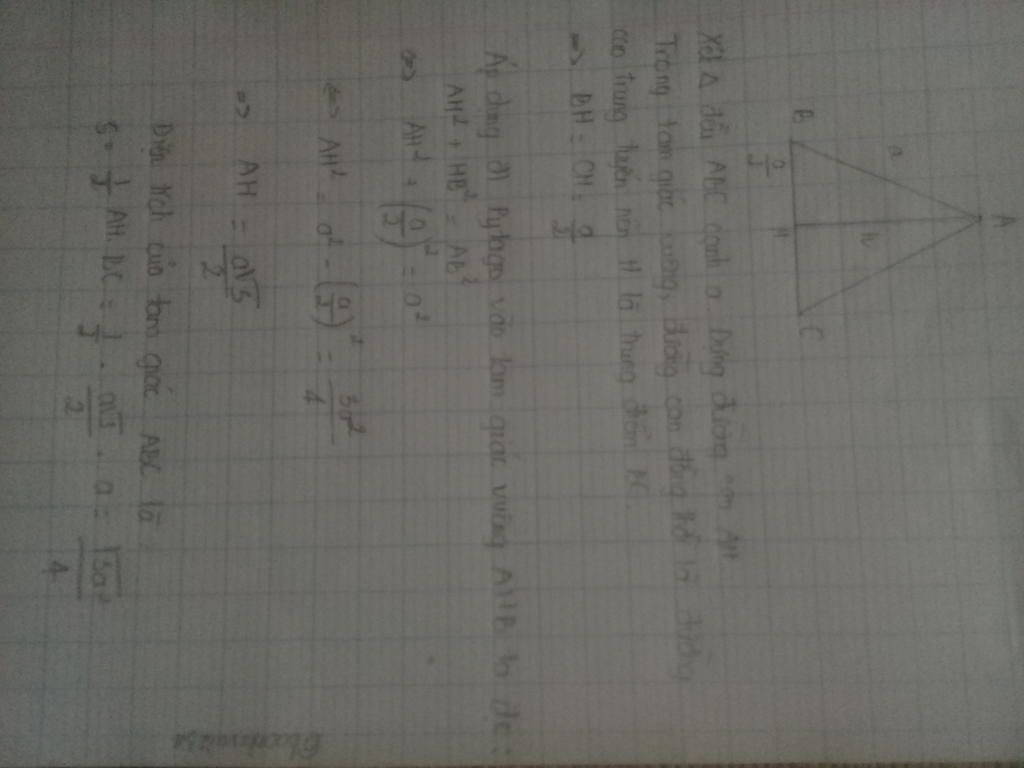 A
a
h
B
a/2
H
C
Xét Δ đều ABC cạnh a Dựng đường cao AH
Trong tam giác vuông, đường cao đồng thời là đường
cao trung tuyến nên H là trung điểm BC
=> BH = CH = a/2
Áp dụng đl Pytago vào tam giác vuông AHB ta đc:
AH² + HB² = AB²
<=> AH² + (a/2)² = a²
<=> AH² = a² - (a/2)² = 3a²/4
=> AH = a√3/2
Diện tích của tam giác ABC là
S = 1/2 AH. BC = 1/2 . a√3/2 . a = √3a²/4